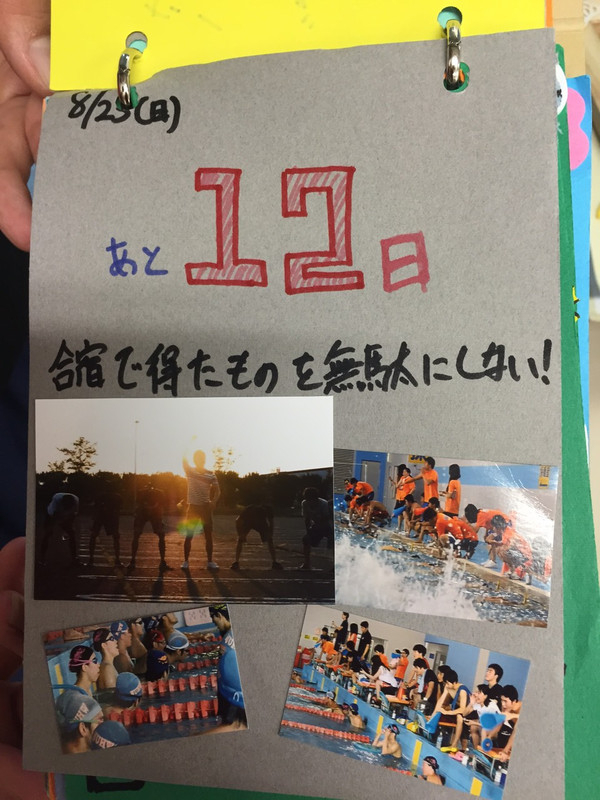 8/23(日)
あと12日
合宿で得たものを無駄にしない!